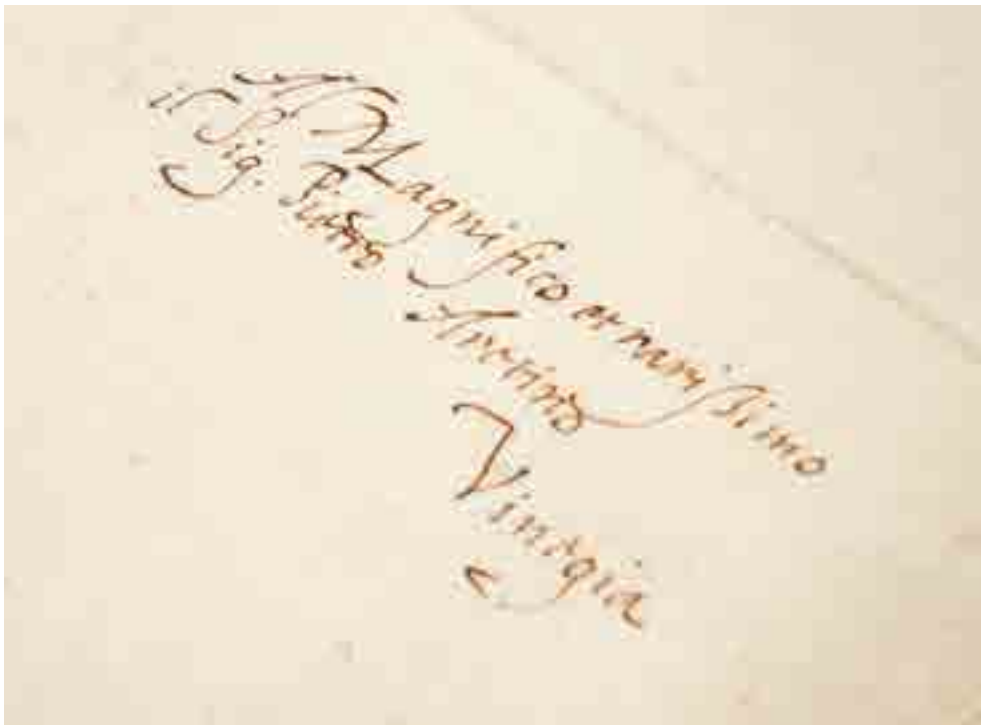 Al Magnifico et rarissimo
il Sig. Pietro Aretino
Vinegia